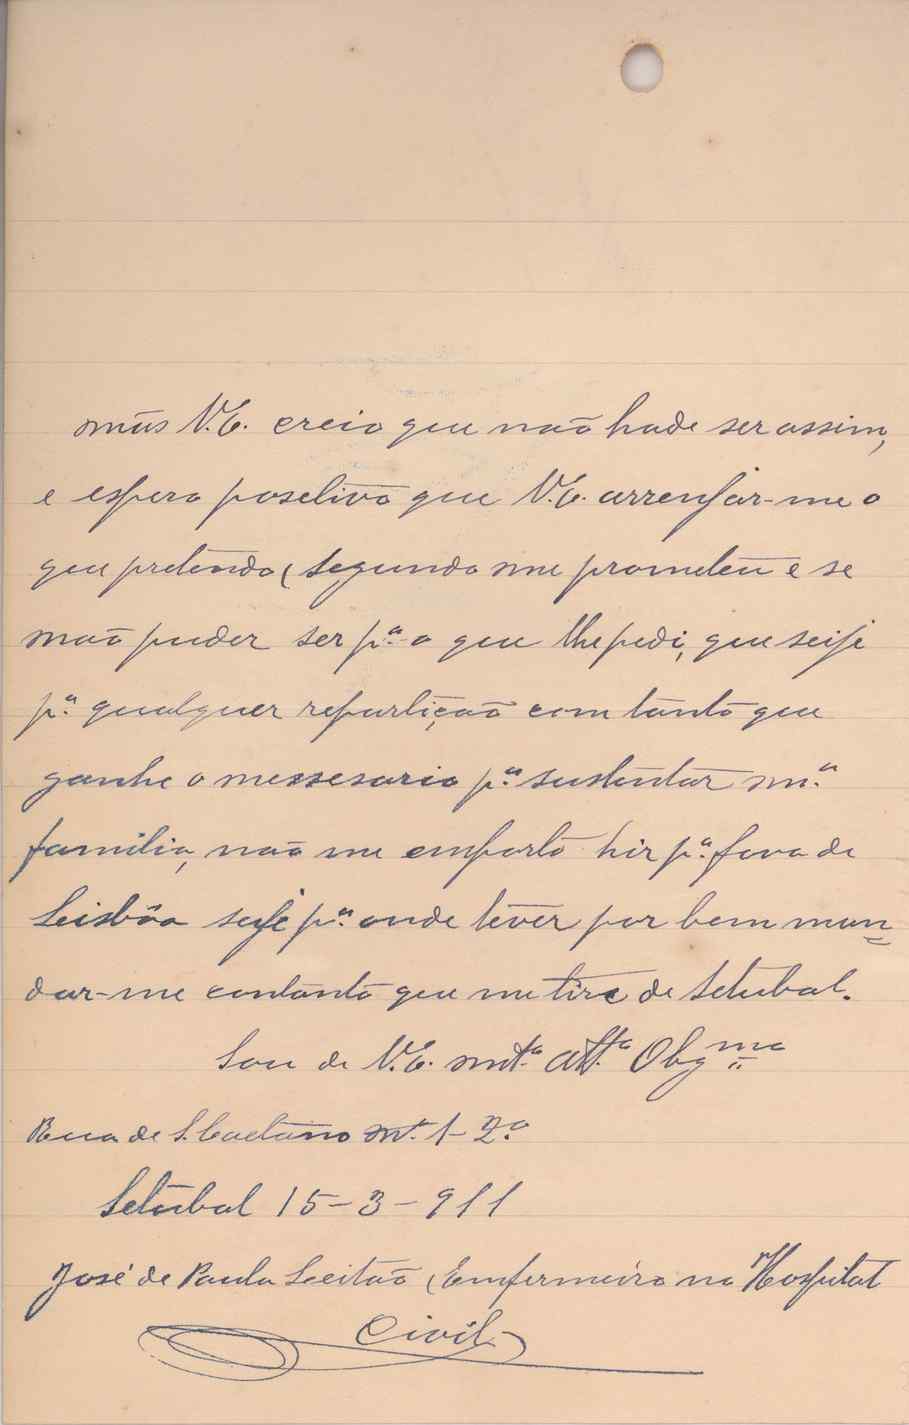 mais V.E. creio que não hade ser assim,
e espero poselivo que V.E. arrenjar-me o
que pretendo (segundo me prometeu e se
não puder ser pª o que lhe pedi, que seije
pª qualquer repartição com tanto que
ganhe o nessesario pª sustentar mª
familia, não me emporta hir pª fora de
Leisbôa seije pª onde tever por bem man=
dar-me contanto que me tire de Setubal.
Sou de V.E. mtº attº Obgmo
Rua de S. Caetano nº 1-2º
Setubal 15-3-911
José de Paula Leitão (Emfermeiro no Hospital
Civil)